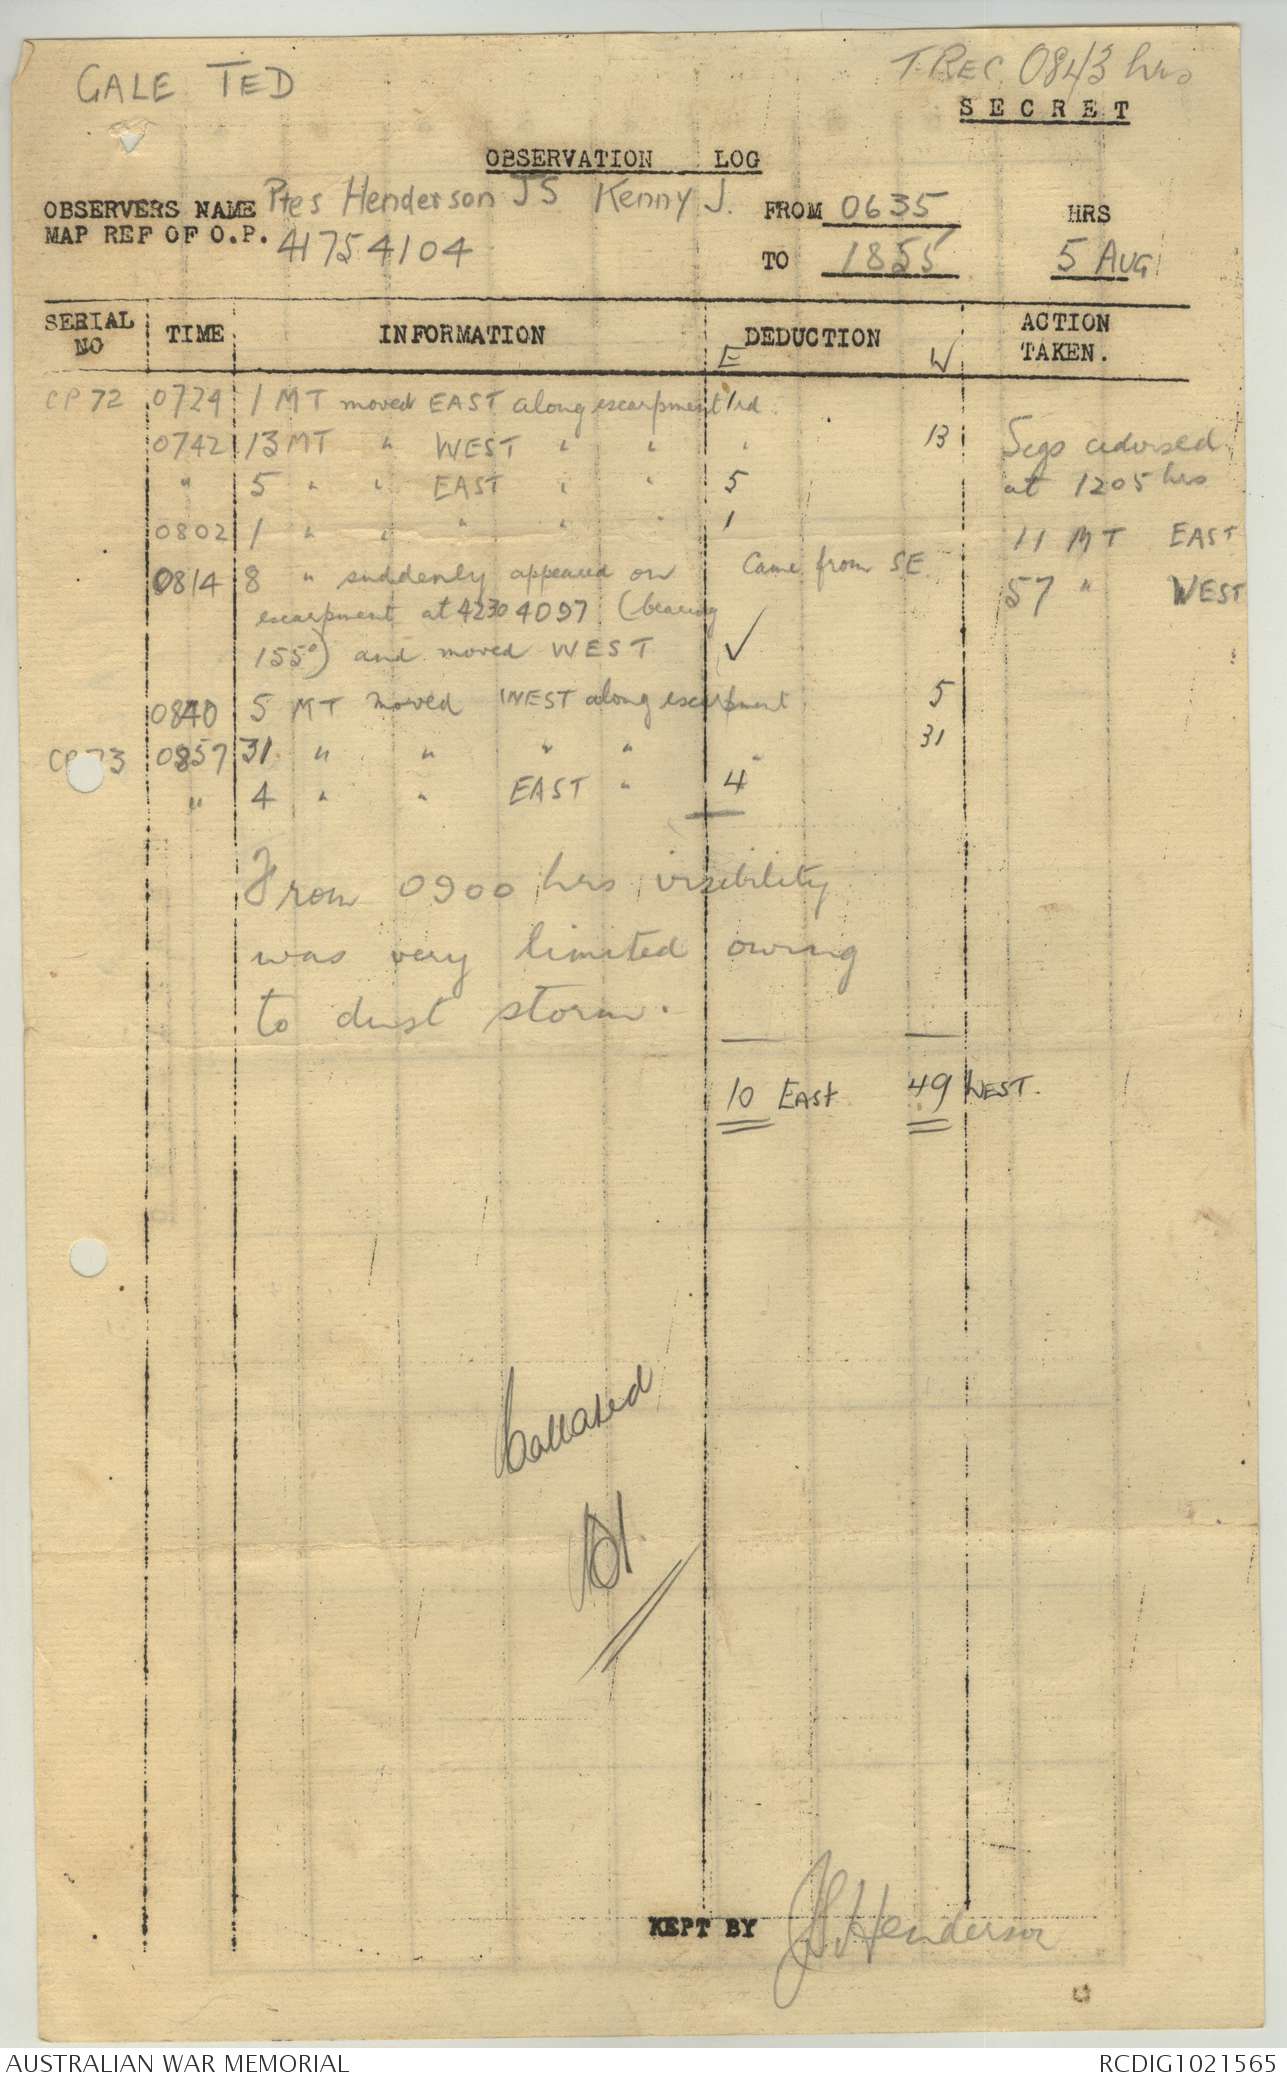 GALE TED
T.REC. 0843 hrs
SECRET
OBSERVATION LOG
OBSERVERS NAME Ptes Henderson JS Kenny J. FROM 0635 HRS
MAP REF OF O.P. 41754104 TO 1855 5 AUG
SERIAL NO TIME INFORMATION DEDUCTION ACTION TAKEN.
E W
CP 72 0724 1 MT moved EAST along escarpment rd. 1
0742 13 MT " WEST " " " 13 Sigs advised
" 5 " " EAST " " 5 at 1205 hrs
0802 1 " " " " " 1 11 MT EAST
0814 8 " suddenly appeared on Came from SE. 57 " WEST
escarpment at 42304097 (bearing
155°) and moved WEST ✓
0840 5 MT moved WEST along escarpment 5
CP 73 0857 31 " " " " " 31
" 4 " " EAST " 4
From 0900 hrs visibility
was very limited owing
to dust storm.
10 East 49 WEST.
Collated
KEPT BY JS Henderson
AUSTRALIAN WAR MEMORIAL RCDIG1021565